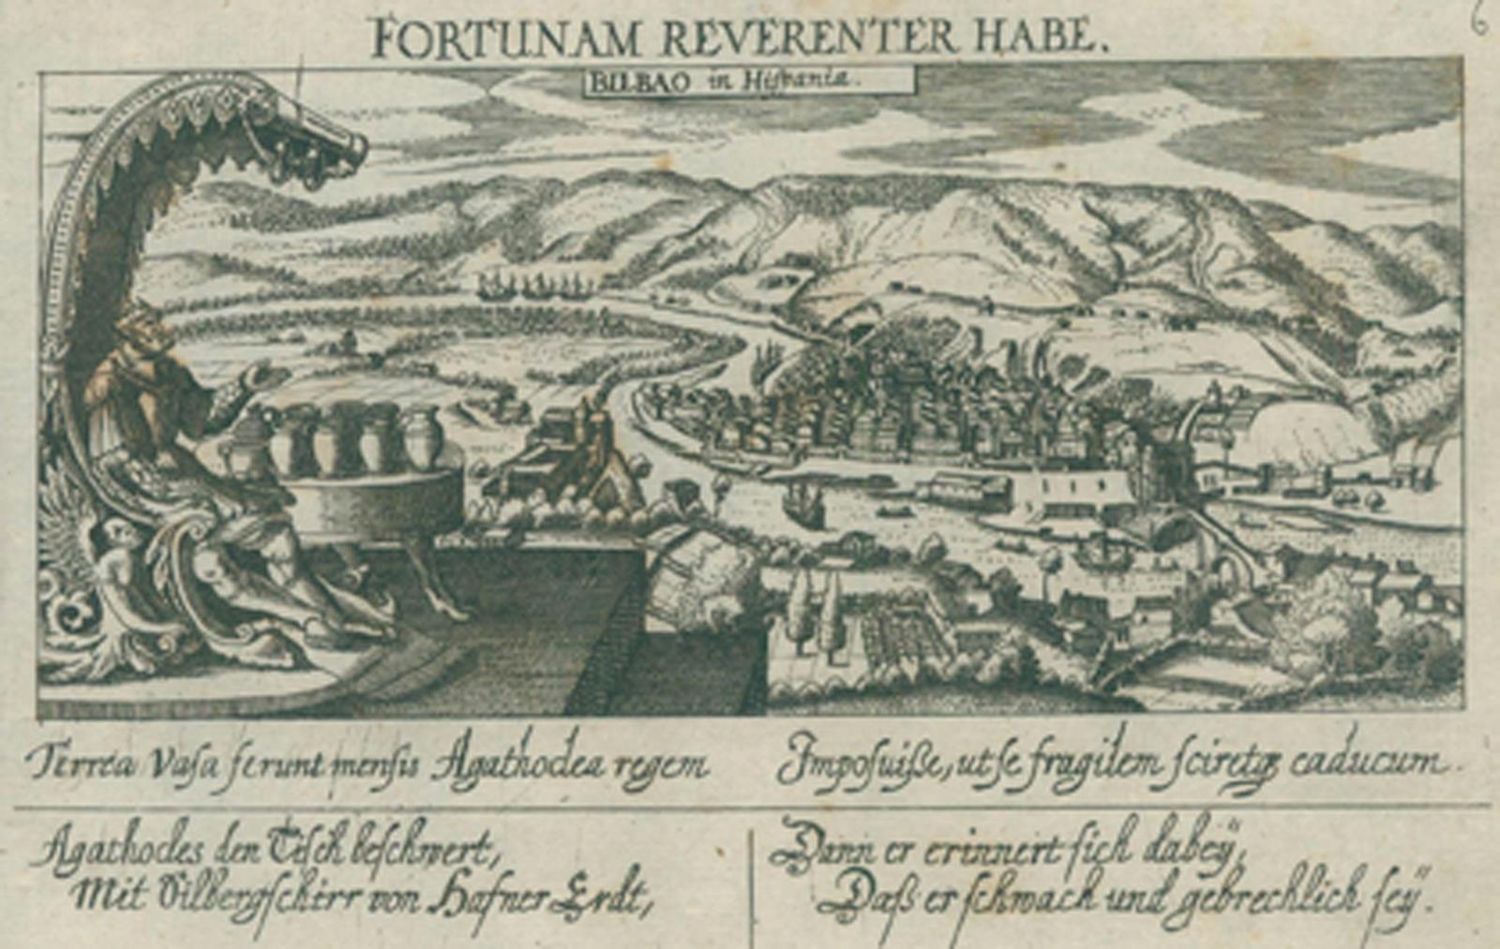 6
FORTUNAM REVERENTER HABE.
BILBAO in Hispania.
Terrea Vasa ferunt mensis Agathoclea regem
Imposuiße, ut se fragilem sciretqꝫ caducum.
Agathocles den Tisch beschwert,
Mit Silbergschirr von Hafner Erdt,
Dann er erinnert sich dabeÿ,
Daß er schwach und gebrechlich seÿ.